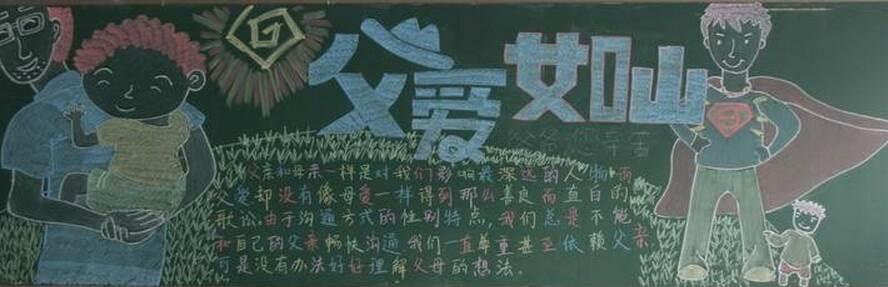 父爱如山
爸爸您辛苦
父亲和母亲一样是对我们影响最深远的人物而
父爱却没有像母爱一样得到那么善良而直白的
歌讼.由于沟通方式的性别特点,我们总是不能
和自己的父亲畅快沟通 我们一直尊重甚至依赖父亲
可是没有办法好好理解父母的想法。